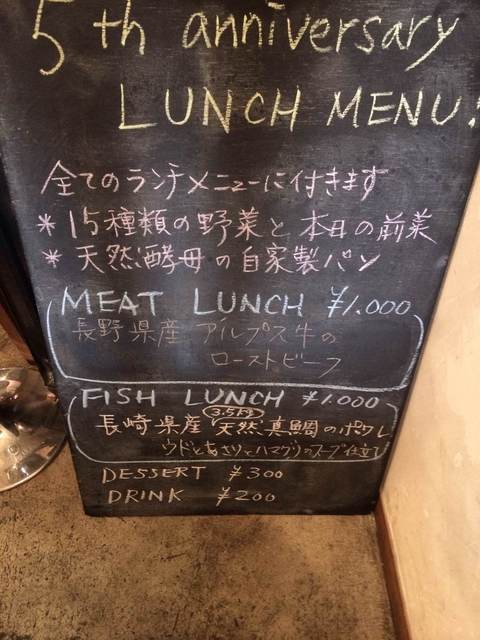 5th anniversary
LUNCH MENU!
全てのランチメニューに付きます
* 15種類の野菜と本日の前菜
* 天然酵母の自家製パン
MEAT LUNCH ¥1.000
長野県産 アルプス牛の
ローストビーフ
FISH LUNCH ¥1.000
3.5kg
長崎県産 天然真鯛のポワレ
ウドとあさりとハマグリのスープ仕立て
DESSERT ¥300
DRINK ¥200